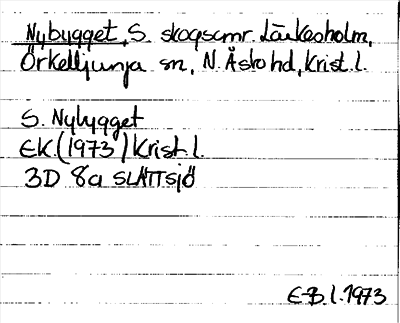 Nybygget, S. skogsomr. Lärkesholm,
Örkelljunga sn, N. Åsbo hd, Krist. l.
S. Nybygget
EK. (1973) Krist. l.
3D 8a SLÄTTSJÖ
E-B. l. 1973